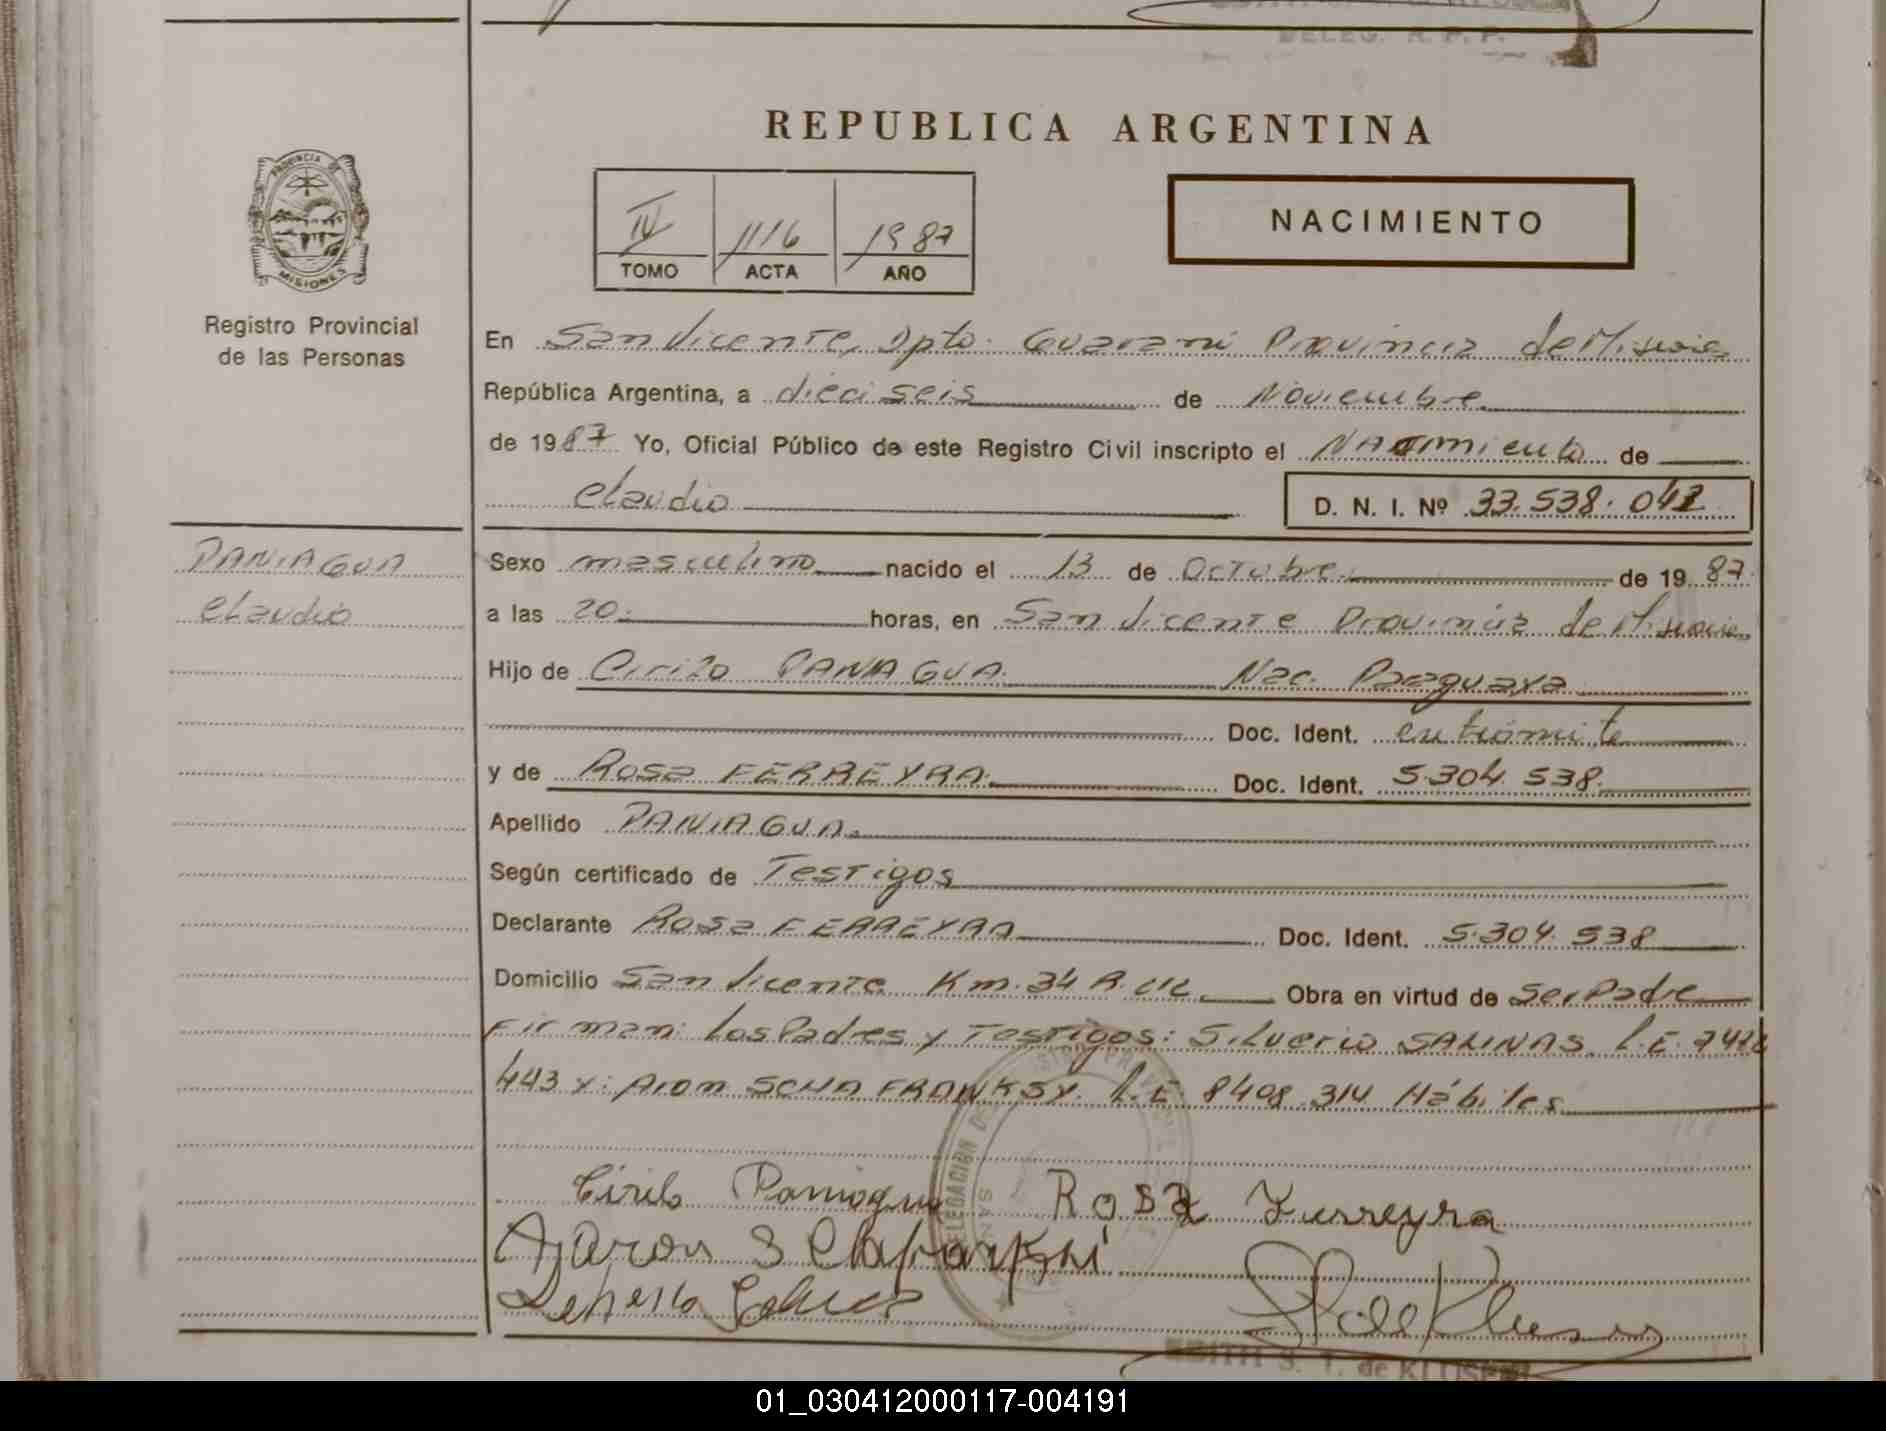 DELEG. R. P. P.
REPUBLICA ARGENTINA
PROVINCIA DE
MISIONES
IV 1116 1987
TOMO ACTA AÑO
NACIMIENTO
Registro Provincial
de las Personas
En San Vicente, Dpto. Guarani Provincia de Misiones
República Argentina, a dieciseis de Noviembre
de 1987 Yo, Oficial Público de este Registro Civil inscripto el Nacimiento de
Claudio
D. N. I. Nº 33.538.042
PANIAGUA
Claudio
Sexo masculino nacido el 13 de Octubre de 1987
a las 20. horas, en San Vicente Provincia de Misiones
Hijo de Cirilo PANIAGUA Nac. Paraguaya
Doc. Ident. en trámite
y de Rosa FERREYRA. Doc. Ident. 5.304.538.
Apellido PANIAGUA.
Según certificado de Testigos
Declarante Rosa FERREYRA Doc. Ident. 5.304.538
Domicilio San Vicente Km. 34 R. Obra en virtud de Ser Padre
Firman: Los Padres y Testigos: Silverio SALINAS. L.E.
443 y: SCHAFRANKSY. L.E 8408.314 Hábiles
Cirilo Paniagua Rosa Ferreyra
DELEGACION
EDITH S. T. de KLUSE
01_030412000117-004191